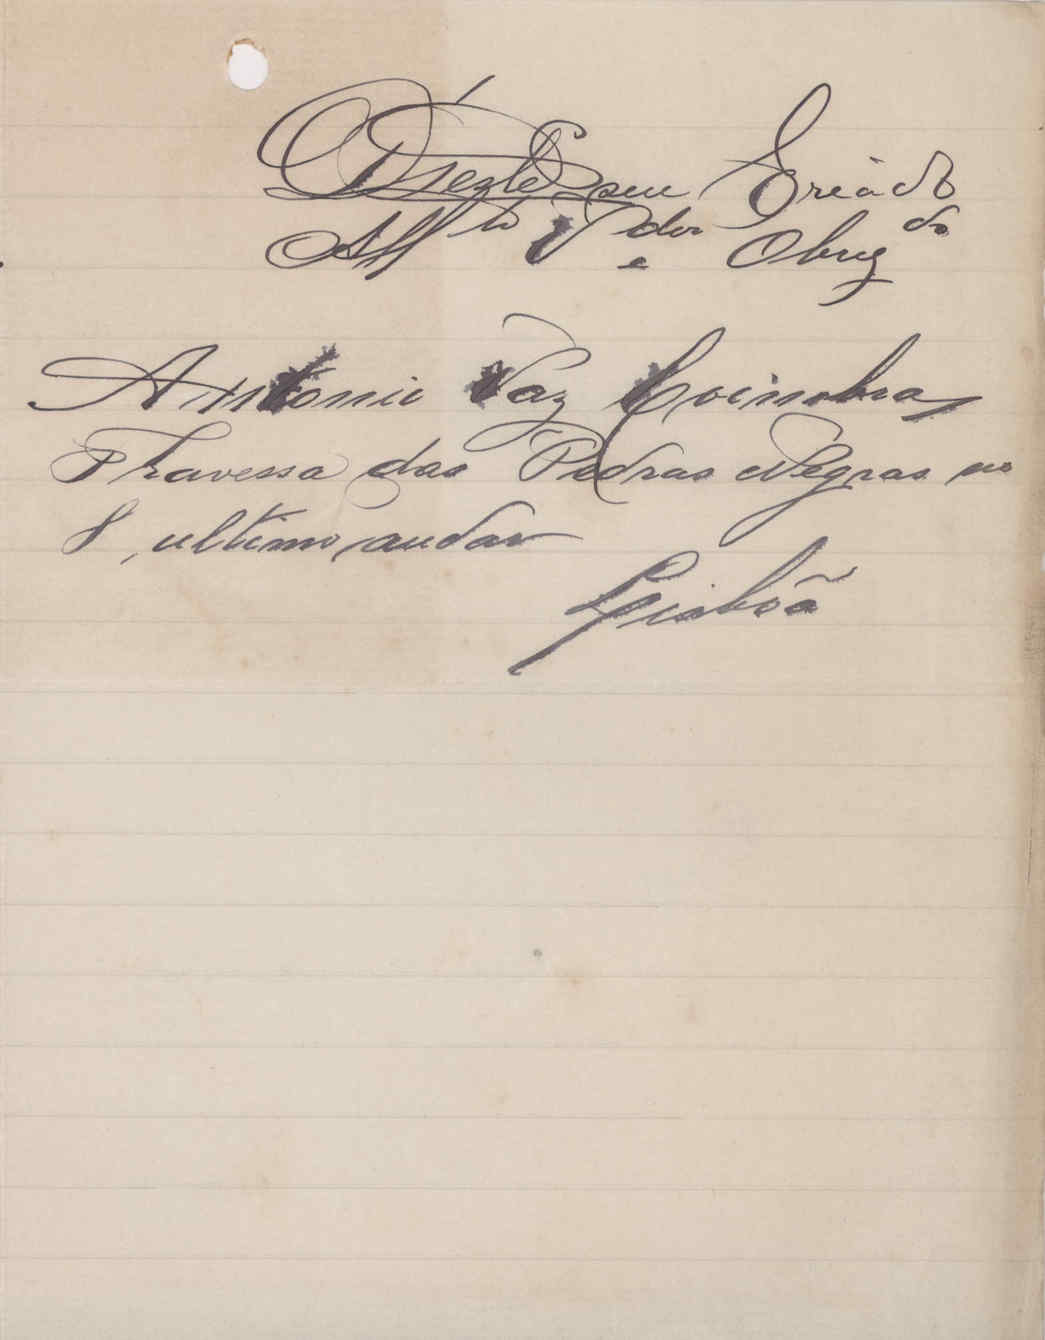 Deste Seu Criado
Atto Vdor e Obrigdo
Antonio Vaz Coimbra
Travessa das Pedras Negras no
8, ultimo andar
Lisbôa